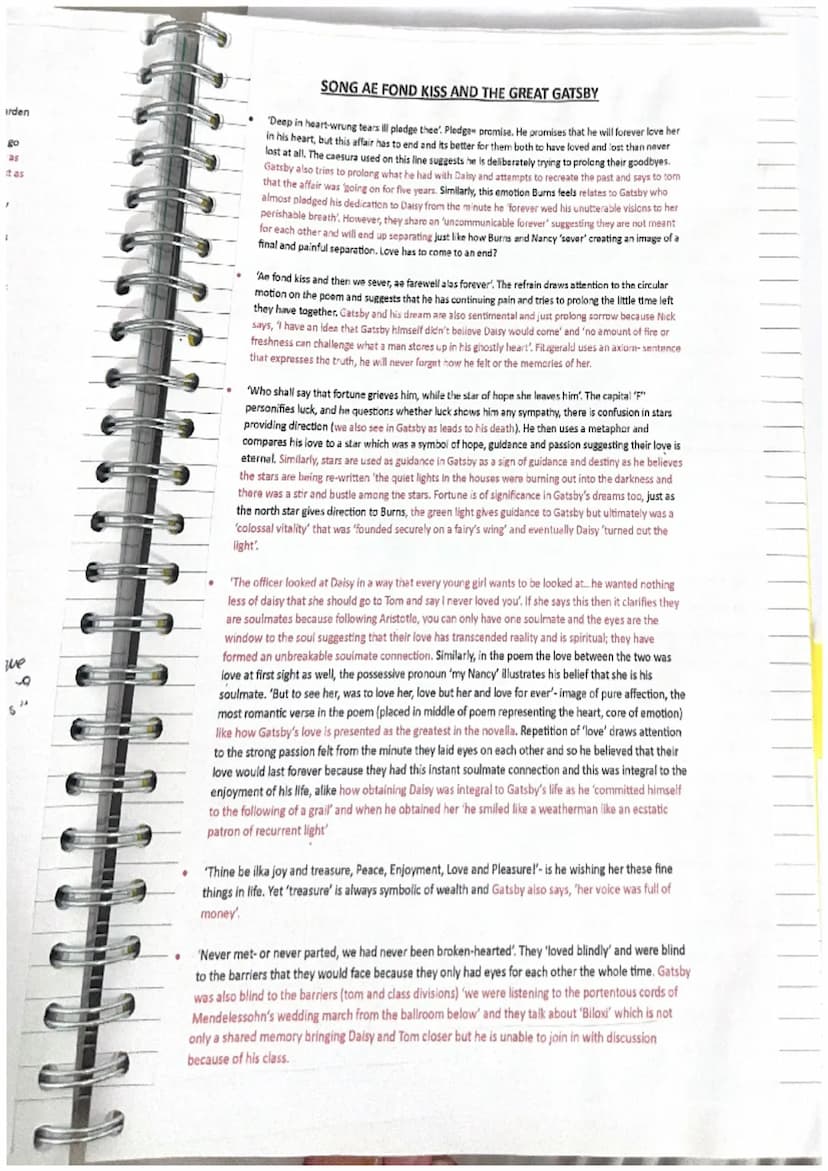 SONG AE FOND KISS AND THE GREAT GATSBY
arden
go
as
t as
• 'Deep in heart-wrung tears ill pledge thee'. Pledge= promise. He promises that he will forever love her
in his heart, but this affair has to end and its better for them both to have loved and lost than never
lost at all. The caesura used on this line suggests he is deliberately trying to prolong their goodbyes.
Gatsby also tries to prolong what he had with Daisy and attempts to recreate the past and says to tom
that the affair was 'going on for five years. Similarly, this emotion Burns feels relates to Gatsby who
almost pledged his dedication to Daisy from the minute he 'forever wed his unutterable visions to her
perishable breath'. However, they share an 'uncommunicable forever' suggesting they are not meant
for each other and will end up separating just like how Burns and Nancy 'sever' creating an image of a
final and painful separation. Love has to come to an end?
• 'Ae fond kiss and then we sever, ae farewell alas forever'. The refrain draws attention to the circular
motion on the poem and suggests that he has continuing pain and tries to prolong the little time left
they have together. Gatsby and his dream are also sentimental and just prolong sorrow because Nick
says, 'I have an idea that Gatsby himself didn't believe Daisy would come' and 'no amount of fire or
freshness can challenge what a man stores up in his ghostly heart'. Fitzgerald uses an axiom- sentence
that expresses the truth, he will never forget how he felt or the memories of her.
• 'Who shall say that fortune grieves him, while the star of hope she leaves him'. The capital 'F"
personifies luck, and he questions whether luck shows him any sympathy, there is confusion in stars
providing direction (we also see in Gatsby as leads to his death). He then uses a metaphor and
compares his love to a star which was a symbol of hope, guidance and passion suggesting their love is
eternal. Similarly, stars are used as guidance in Gatsby as a sign of guidance and destiny as he believes
the stars are being re-written 'the quiet lights in the houses were burning out into the darkness and
there was a stir and bustle among the stars. Fortune is of significance in Gatsby's dreams too, just as
the north star gives direction to Burns, the green light gives guidance to Gatsby but ultimately was a
'colossal vitality' that was 'founded securely on a fairy's wing' and eventually Daisy 'turned out the
light'.
• 'The officer looked at Daisy in a way that every young girl wants to be looked at...he wanted nothing
less of daisy that she should go to Tom and say I never loved you'. If she says this then it clarifies they
are soulmates because following Aristotle, you can only have one soulmate and the eyes are the
window to the soul suggesting that their love has transcended reality and is spiritual; they have
formed an unbreakable soulmate connection. Similarly, in the poem the love between the two was
love at first sight as well, the possessive pronoun 'my Nancy' illustrates his belief that she is his
soulmate. 'But to see her, was to love her, love but her and love for ever'- image of pure affection, the
most romantic verse in the poem (placed in middle of poem representing the heart, core of emotion)
like how Gatsby's love is presented as the greatest in the novella. Repetition of 'love' draws attention
to the strong passion felt from the minute they laid eyes on each other and so he believed that their
love would last forever because they had this instant soulmate connection and this was integral to the
enjoyment of his life, alike how obtaining Daisy was integral to Gatsby's life as he 'committed himself
to the following of a grail' and when he obtained her 'he smiled like a weatherman like an ecstatic
patron of recurrent light'
• 'Thine be ilka joy and treasure, Peace, Enjoyment, Love and Pleasure!'- is he wishing her these fine
things in life. Yet 'treasure' is always symbolic of wealth and Gatsby also says, 'her voice was full of
money'.
• 'Never met- or never parted, we had never been broken-hearted'. They 'loved blindly' and were blind
to the barriers that they would face because they only had eyes for each other the whole time. Gatsby
was also blind to the barriers (tom and class divisions) 'we were listening to the portentous cords of
Mendelessohn's wedding march from the ballroom below' and they talk about 'Biloxi' which is not
only a shared memory bringing Daisy and Tom closer but he is unable to join in with discussion
because of his class.